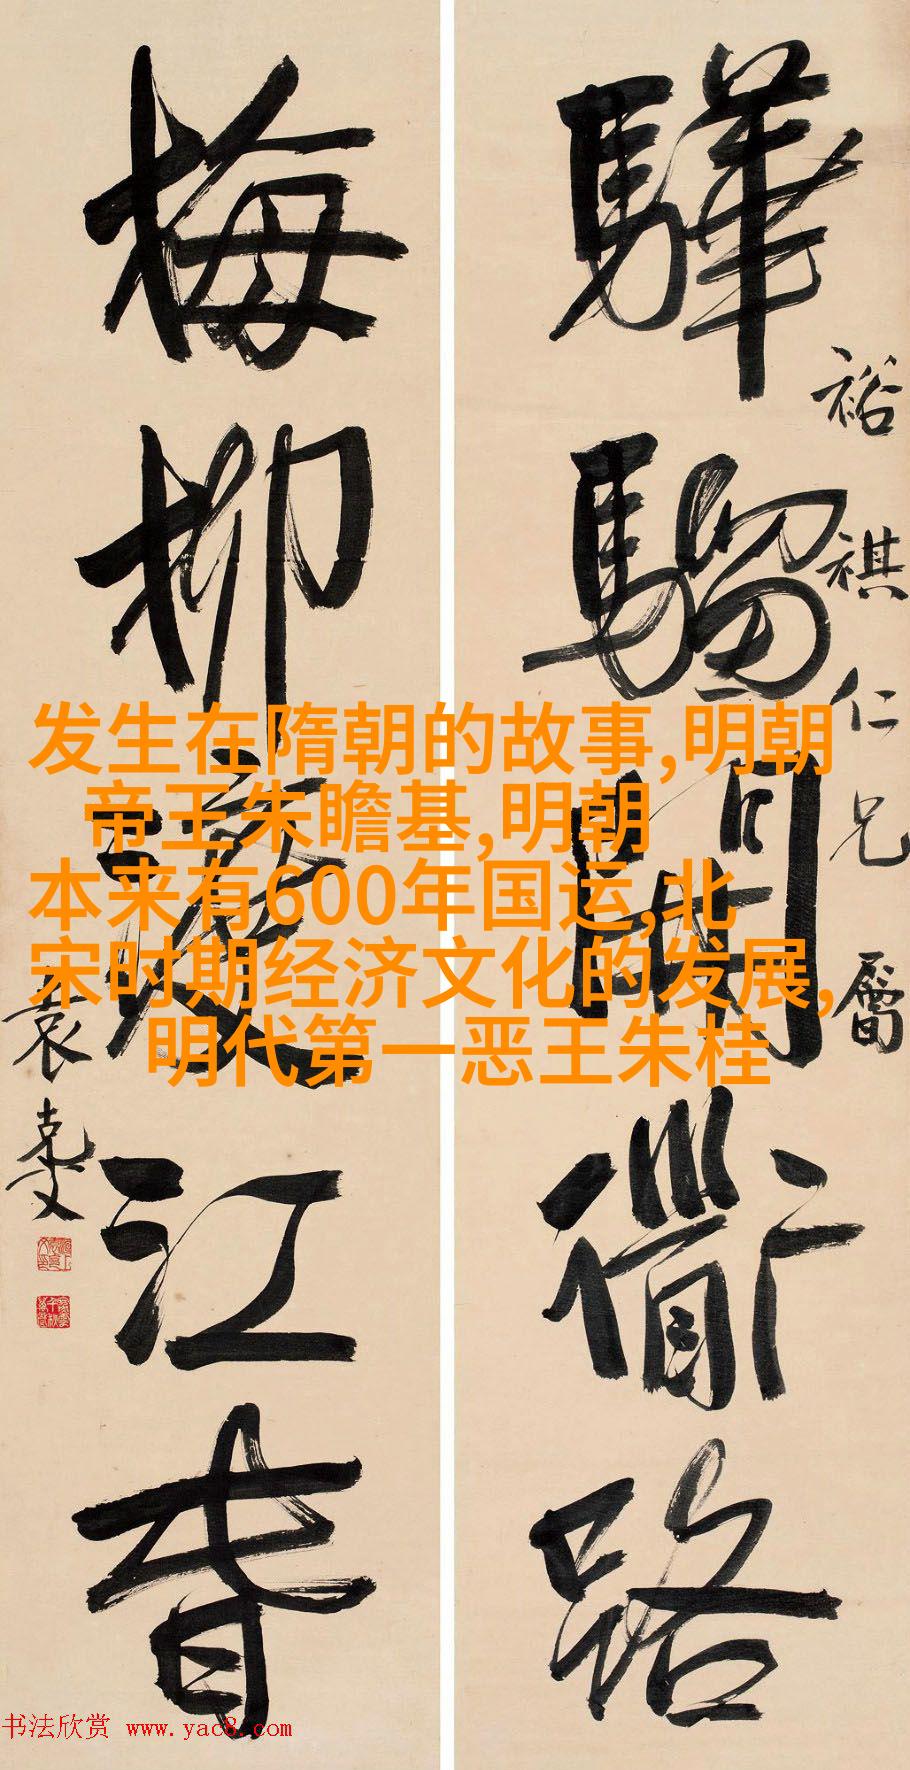 驊騮開衟路
裕祺仁兄屬
梅柳渡江春
袁克文
发生在隋朝的故事,明朝
帝王朱瞻基,明朝
本来有600年国运,北
宋时期经济文化的发展,
明代第一恶王朱桂
书法欣赏 www.yac8.com